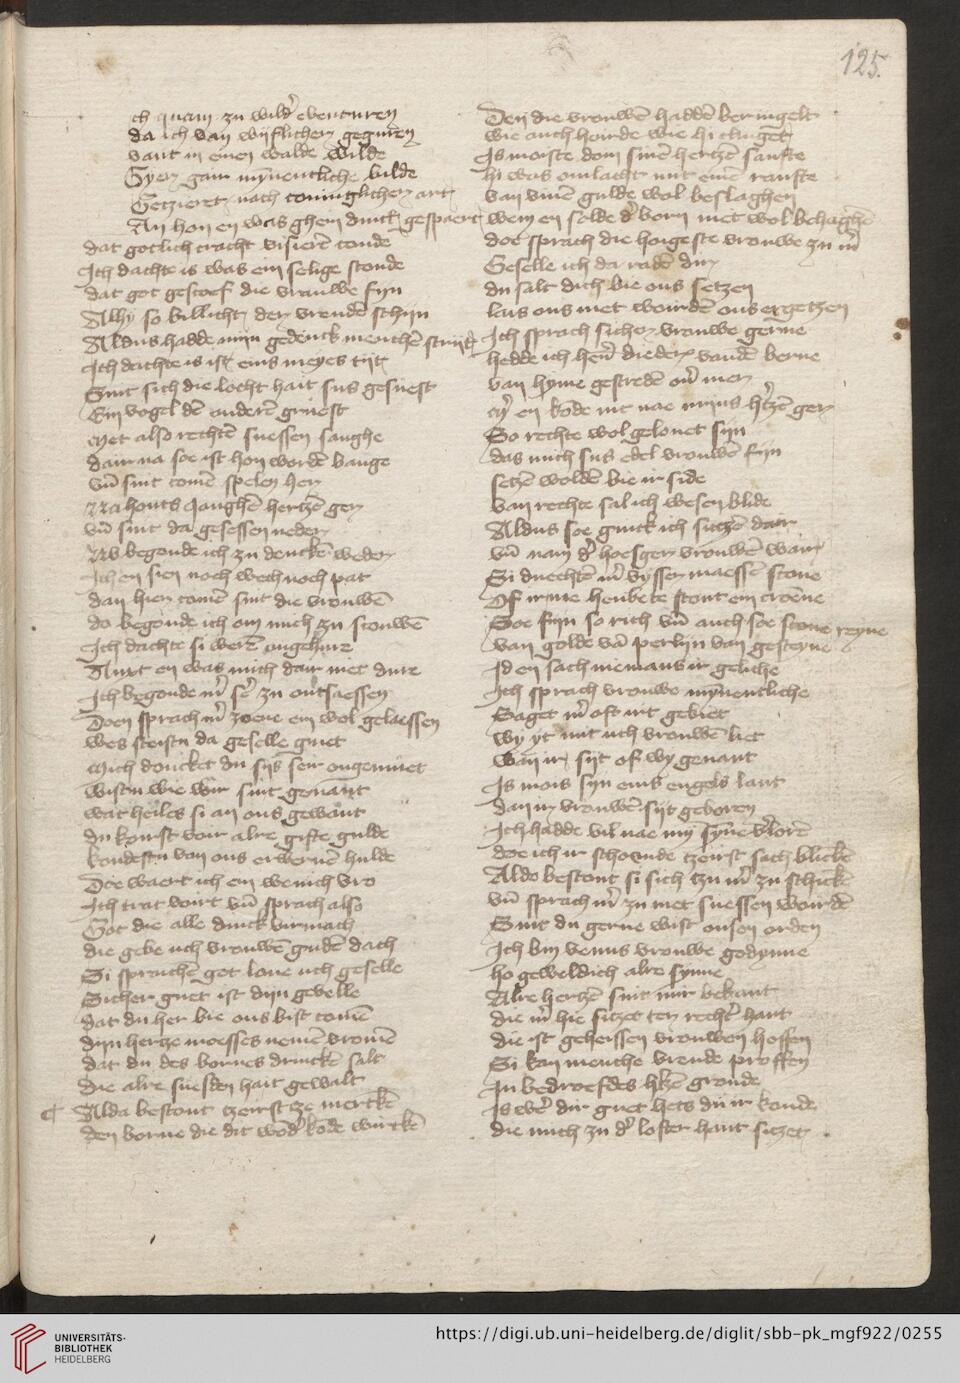 125.
ch quam zu wild' eventuren
da ich van wijflicher geguren
vant in enen walde wilde
Syer gair mynentliche bilde
Getzieret nach coninglicher art
An hon en was ghein dinck gespaert
dat gotlich cracht visierē conde
Ich dachte is was ein selige stonde
dat got gescoef die vrauwe fyn
Alhy so billicht der vrendē schijn
Aldus hadde mijn gedenck menchē strijt
Ich dachte is ist eins meyes tijt
Sint sich die locht hait sus gesuest
Ein vogel dē anderē gruest
Met also rechtē suessen sanghe
dair na soe ist hon wordē bange
vn̄ sint comē spelen her
Na honts janghē hertzē ger
vn̄ sint da gesessen neder
Nv begonde ich zu denckē weder
Ich en sien noch wech noch pat
dan hier comē sint die vrouwē
do begonde ich om mich zu scouwē
Ich dachte si werē ongehure
Anxt en was mich dair met dure
Ich begonde m' se' zu ontsaessen
Doen sprach m' zoene ein wol gelaessen
wes steistu da geselle guet
Mich douncket du sijs seir ongemuet
Wistu wie wir sint genant
wat heiles si an ons gewant
du konst voir alre gifte gulde
kondestu van ons erwervē hulde
Doe waert ich ein wenich vro
Ich trat voirt vn̄ sprach also
Got die alle dinck virmach
die gebe uch vrouwē gudē dach
Si sprachē got lone uch geselle
Sicher guet ist dijn gevelle
dat du her bie ons bist comē
dijn hertze moesses nemē vromē
dat du des bornes drinckē salt
die alre suesten hait gewalt
Alda bestont tzeirst ze merckē
den borne die dit wond' kōde wirckē
Den die vrouwē haddē beringelt
wie auch hoirde wie hi clinget
Is moiste dom sinē hertzē sanfte
hi was omlacht mit enē ranfte
van vinē gulde wol beslaghen
wem en solde d' born niet wol behaghē
doe sprach die hoigeste vrouwe zu m'
Geselle ich da radē dir
du salt dich bie ons setzen
lais ons met woirdē ons ergetzen
Ich sprach sicher vrouwe gerne
hedde ich hern diederx vandē berne
van hyme gestredē on' mer
M' en kōde nit nae mijns h'tzē ger
So rechte wol gelonet sijn
das mich sus edel vrouwē fijn
setzē woldē bie ir side
Van rechte sal ich wesen blide
Aldus soe ginck ich sitzē dair
vn̄ nam d' hoesger vrouwē wair
Si duechtē m' vyssen maessē scone
Of irme heubete stont ein croene
Soe fijn so rich vn̄ auch soe scone reyne
Van golde vā perlijn van gesteyne
Id en sach niemans ir geliche
Ich sprach vrouwe mynentliche
Saget m' oft irt gebiet
wy yt mit uch vrouwē liet
wan ir sijt of wy genant
Is mois sijn eins engels lant
dan ir vrouwē sijt geboren
Ich hadde vil nae my synē v'lorē
doe ich ir schoinde tzeirst sach blickē
Aldo bestont si sich tzu m' zu schickē
vn̄ sprach m' zu met suessen woirdē
Sint du gerne wist onsen orden
Ich bin venus vrouwe godynne
ho geweldich alre synne
Alre hertzē sint mir bekant
die m' hie sitzet ter recht' hant
die ist geheissen vrouwen hoffen
Si kan menche vrende proffen
In bedroefdes h'tzē gronde
Is we' dir guet hets du ir konde
die mich zu d' lofter hant sitzet
UNIVERSITÄTS-
BIBLIOTHEK
HEIDELBERG
https://digi.ub.uni-heidelberg.de/diglit/sbb-pk_mgf922/0255